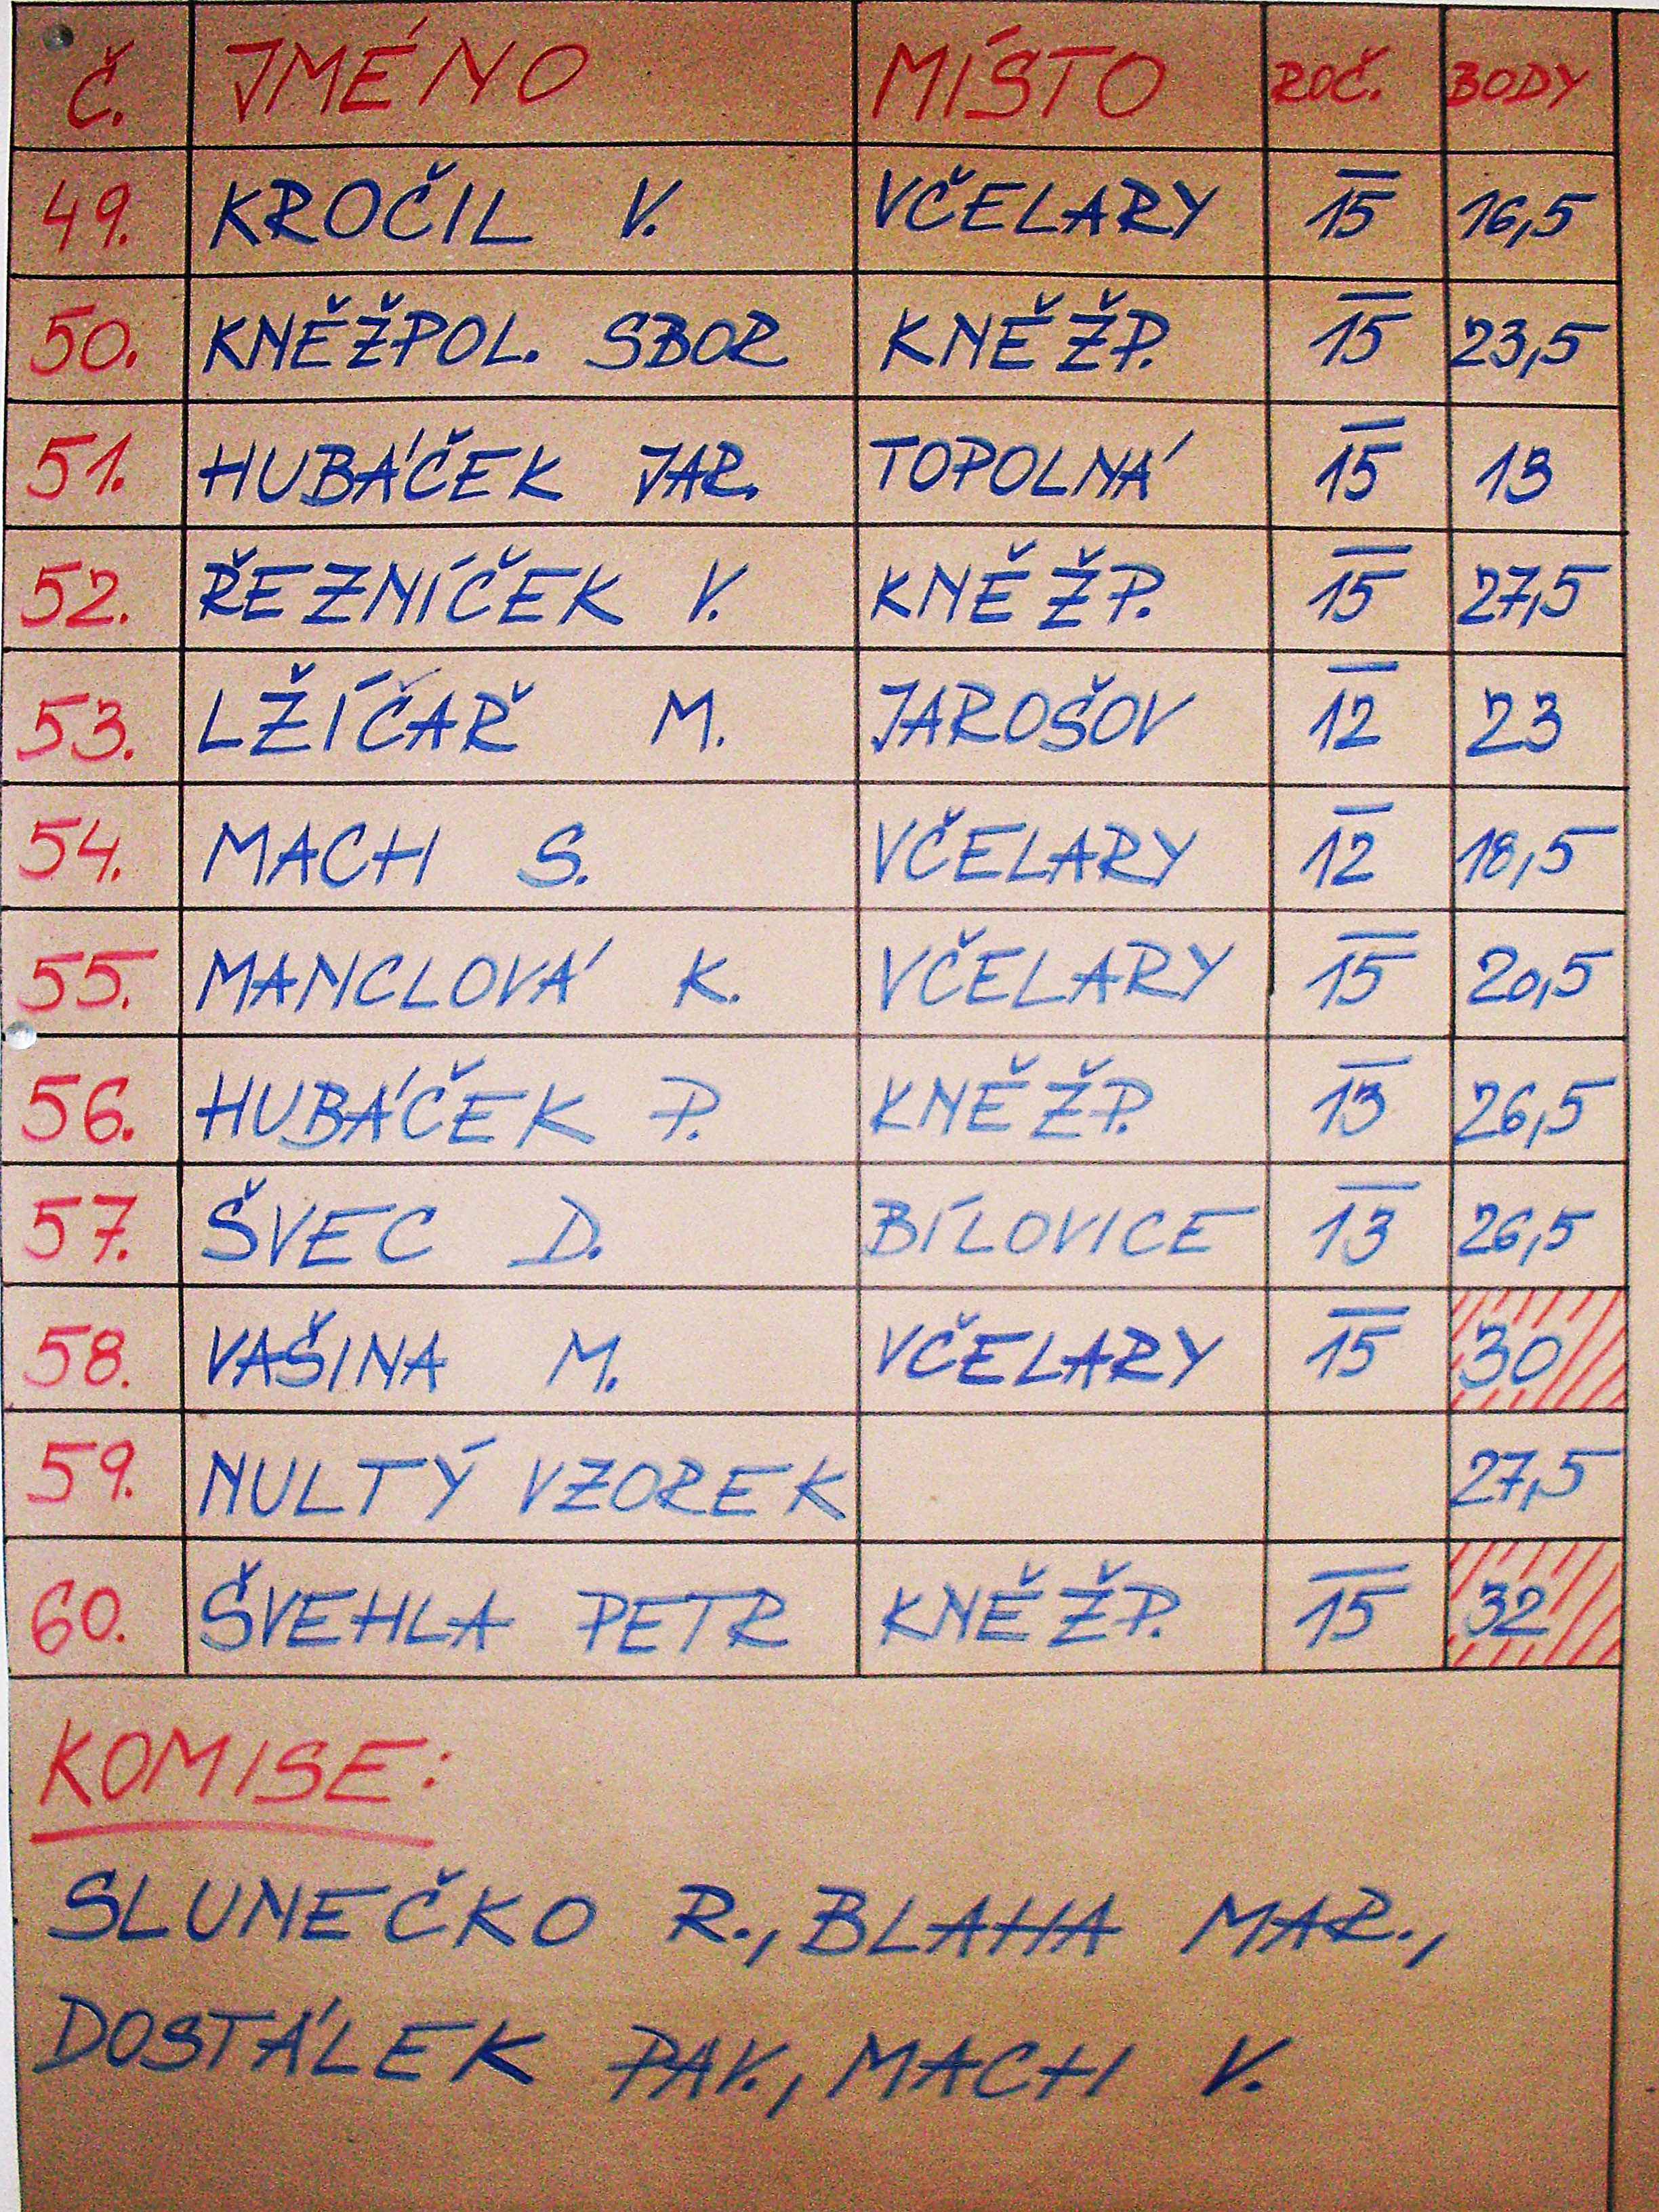 Č. JMÉNO MÍSTO ROČ. BODY
49. KROČIL V. VČELARY 15 16,5
50. KNĚŽPOL. SBOR KNĚŽP. 15 23,5
51. HUBÁČEK JAR. TOPOLNÁ 15 13
52. ŘEZNÍČEK V. KNĚŽP. 15 27,5
53. LŽÍČAŘ M. JAROŠOV 12 23
54. MACH S. VČELARY 12 18,5
55. MANCLOVÁ K. VČELARY 15 20,5
56. HUBÁČEK P. KNĚŽP. 13 26,5
57. ŠVEC D. BÍLOVICE 13 26,5
58. VAŠINA M. VČELARY 15 30
59. NULTÝ VZOREK 27,5
60. ŠVEHLA PETR KNĚŽP. 15 32
KOMISE:
SLUNEČKO R., BLAHA MAR.,
DOSTÁLEK PAV., MACH V.